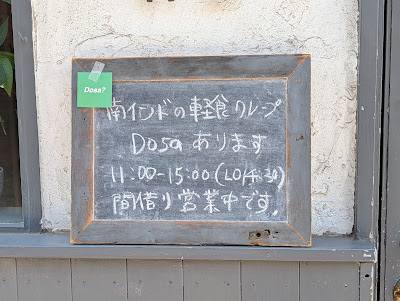 Dosa?
南インドの軽食クレープ
Dosaあります
11:00-15:00(LO14:30)
間借り営業中です。